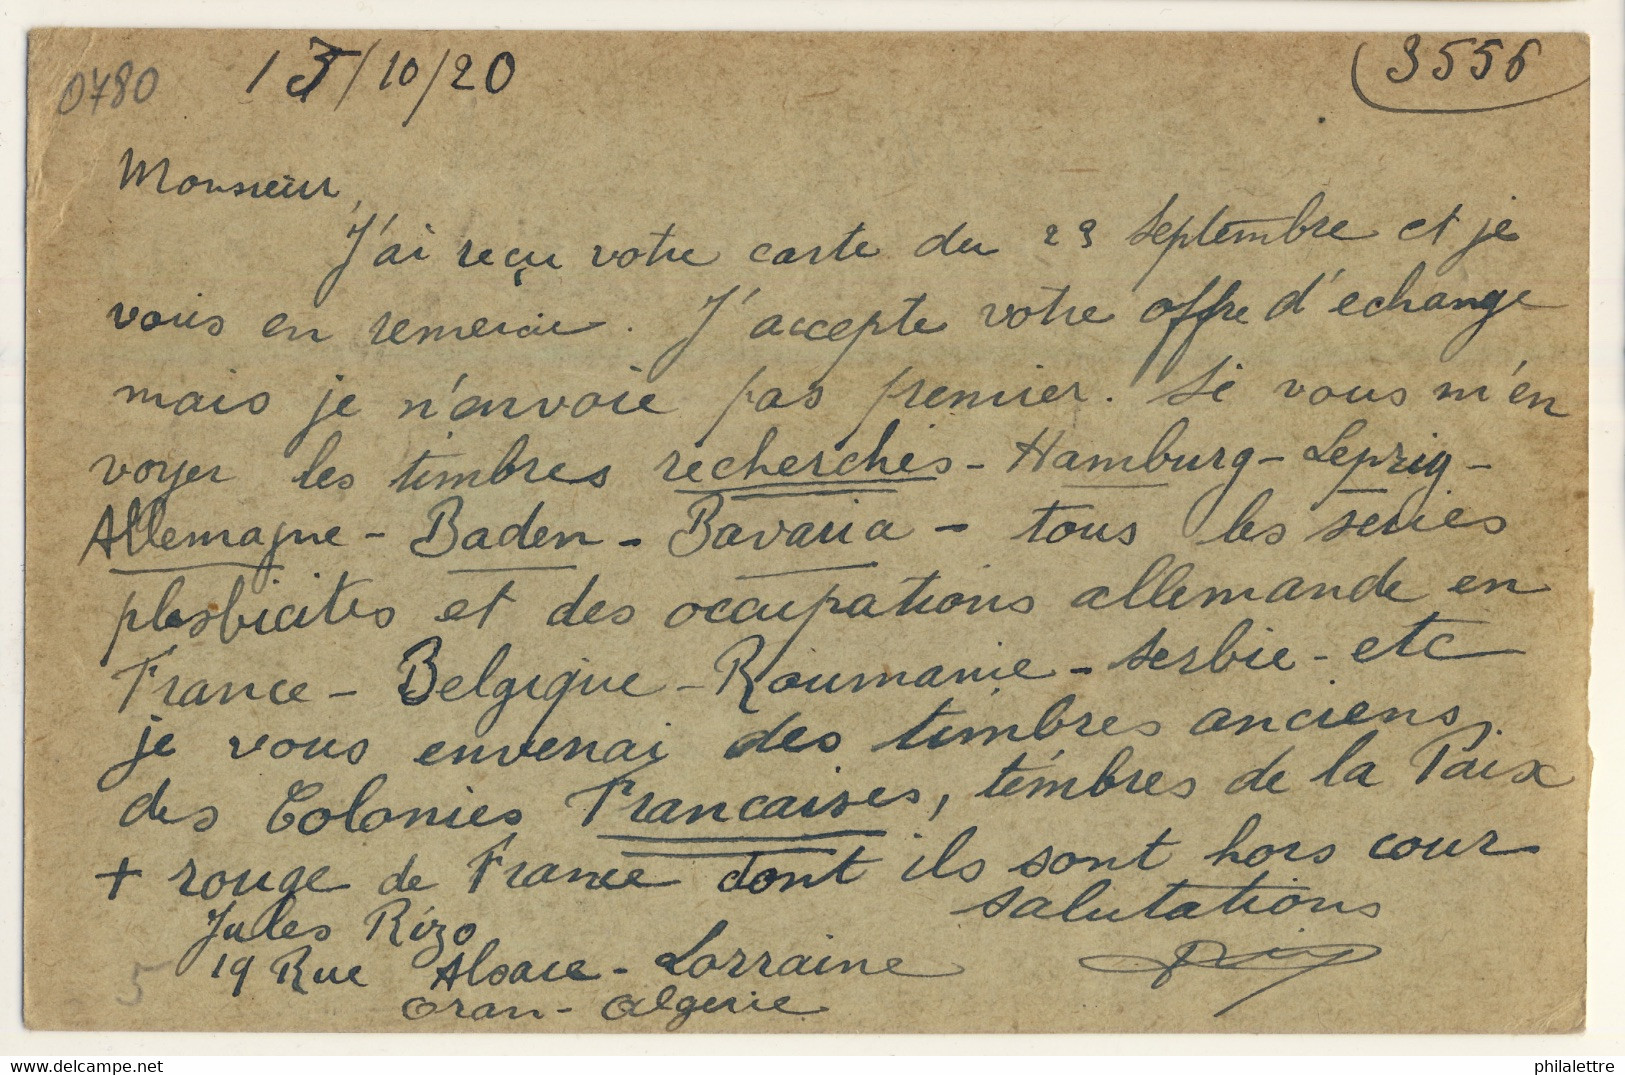 0780 13/10/20 3556
Monsieur,
J'ai reçu votre carte du 23 septembre et je
vous en remercie. J'accepte votre offre d'echange
mais je n'envoie pas premier. Si vous m'en
voyer les timbres recherchés - Hamburg - Lepzig -
Allemagne - Baden - Bavaria - tous les series
plesbicites et des occupations allemande en
France - Belgique - Roumanie - Serbie - etc
je vous enverrai des timbres anciens,
des Colonies Francaises, timbres de la Paix
+ rouge de France dont ils sont hors cour
salutations
Jules Rizo
19 Rue Alsace - Lorraine
Oran - Algerie
5
philalettre